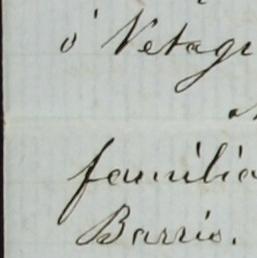 ó Netagr
familia
Barrio.